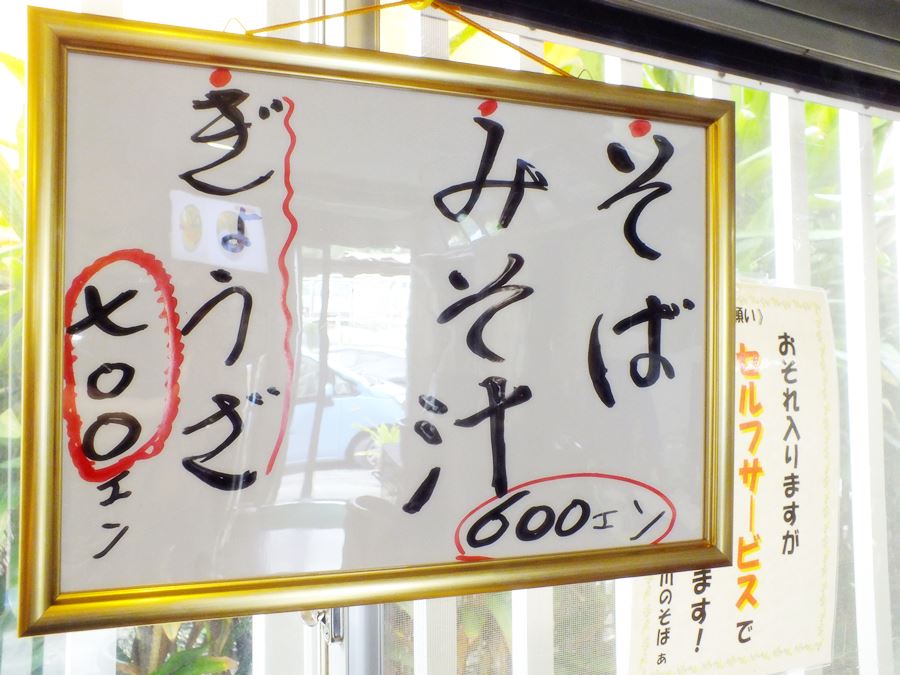 そば
みそ汁
600エン
ぎょうざ
七〇〇エン
願い》
おそれ入りますが
セルフサービスで
ます！
川のそばぁ